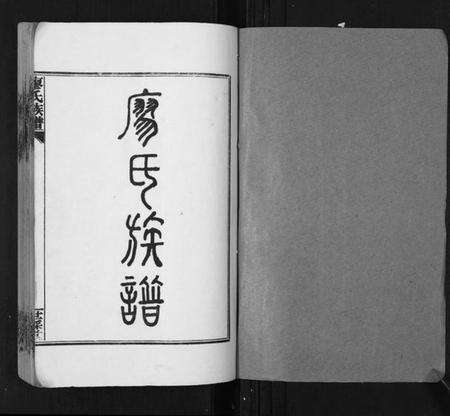 廖氏族譜
廖氏族譜